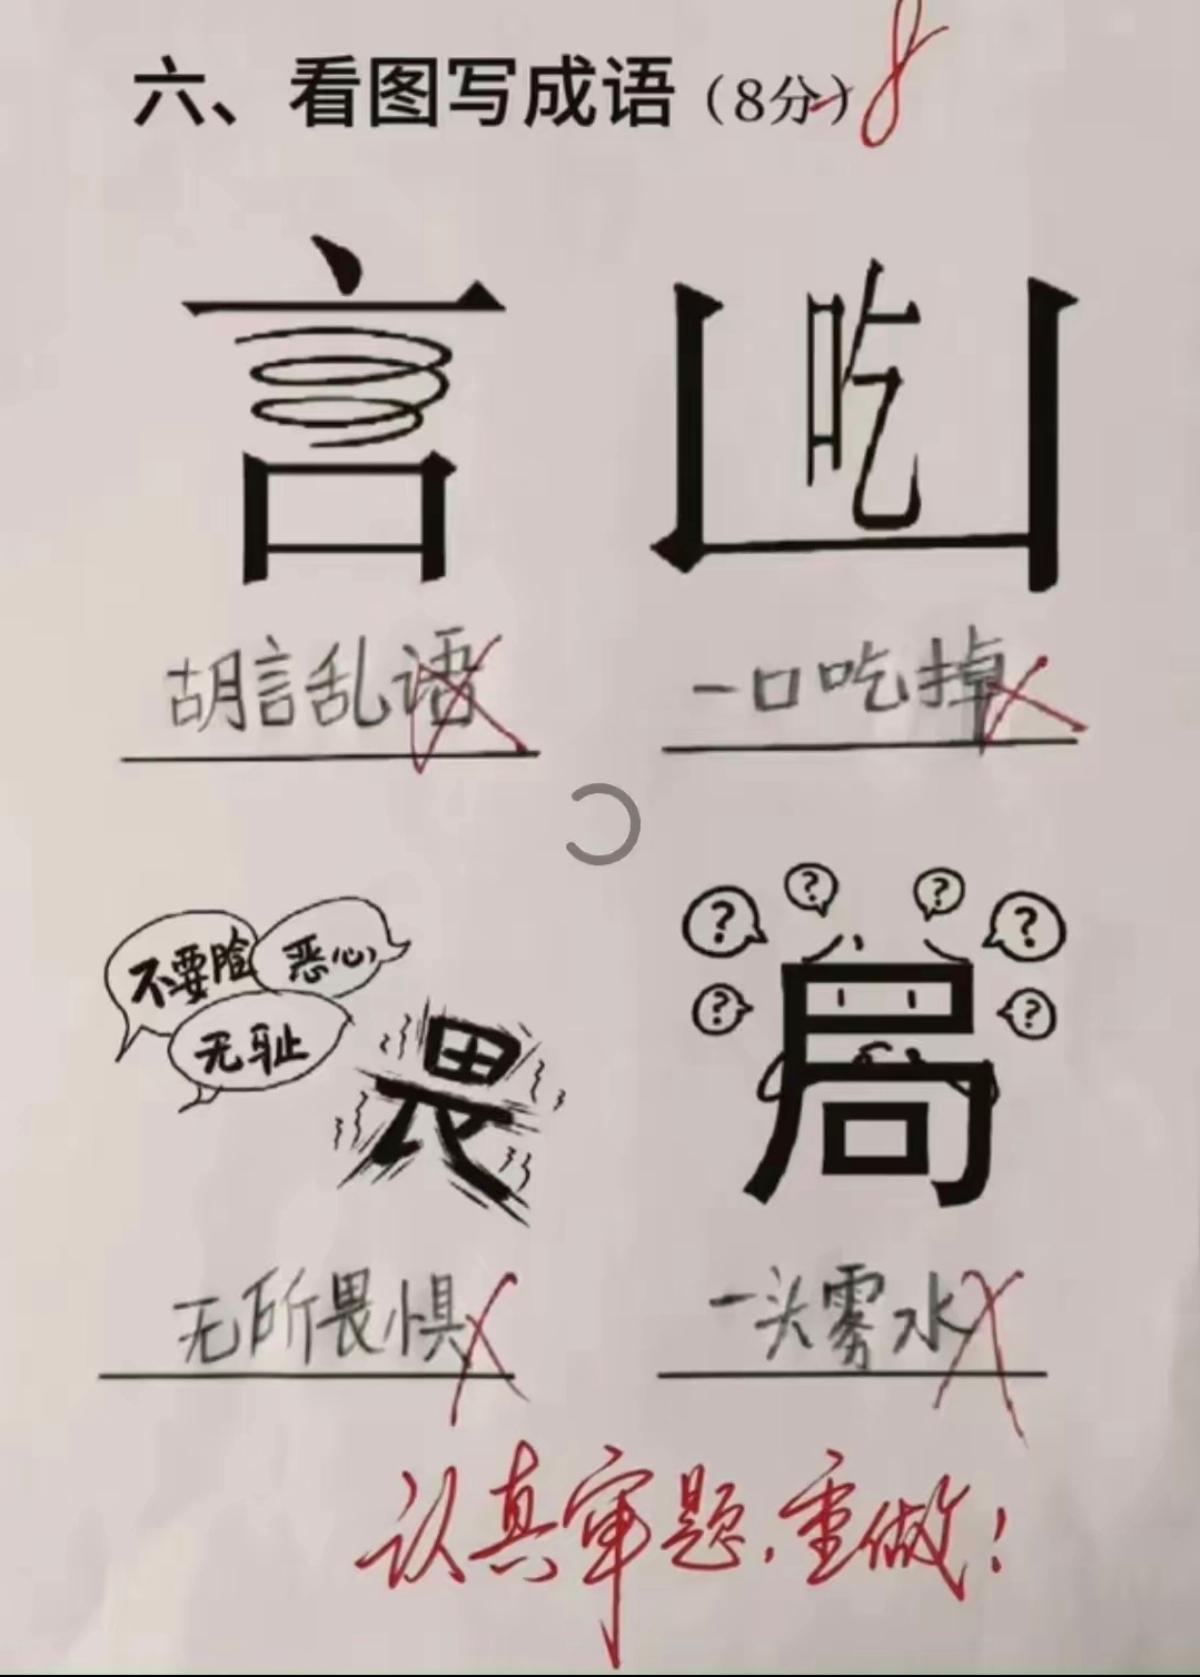 六、看图写成语（8分） -8
言 吃
胡言乱语 一口吃掉
不要脸 恶心
无耻
畏
? ? ? ?
? ?
局
无所畏惧 一头雾水
认真审题，重做！